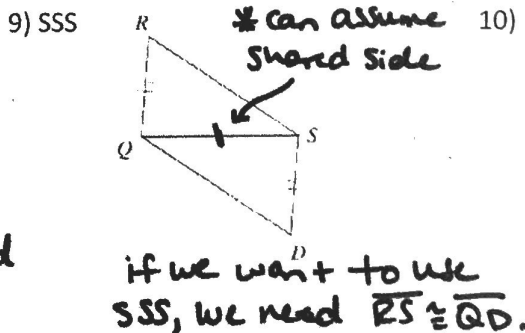 9) SSS
R
* can assume
shared side
10)
Q
S
D
if we want to use
SSS, we need RS ≅ QD.